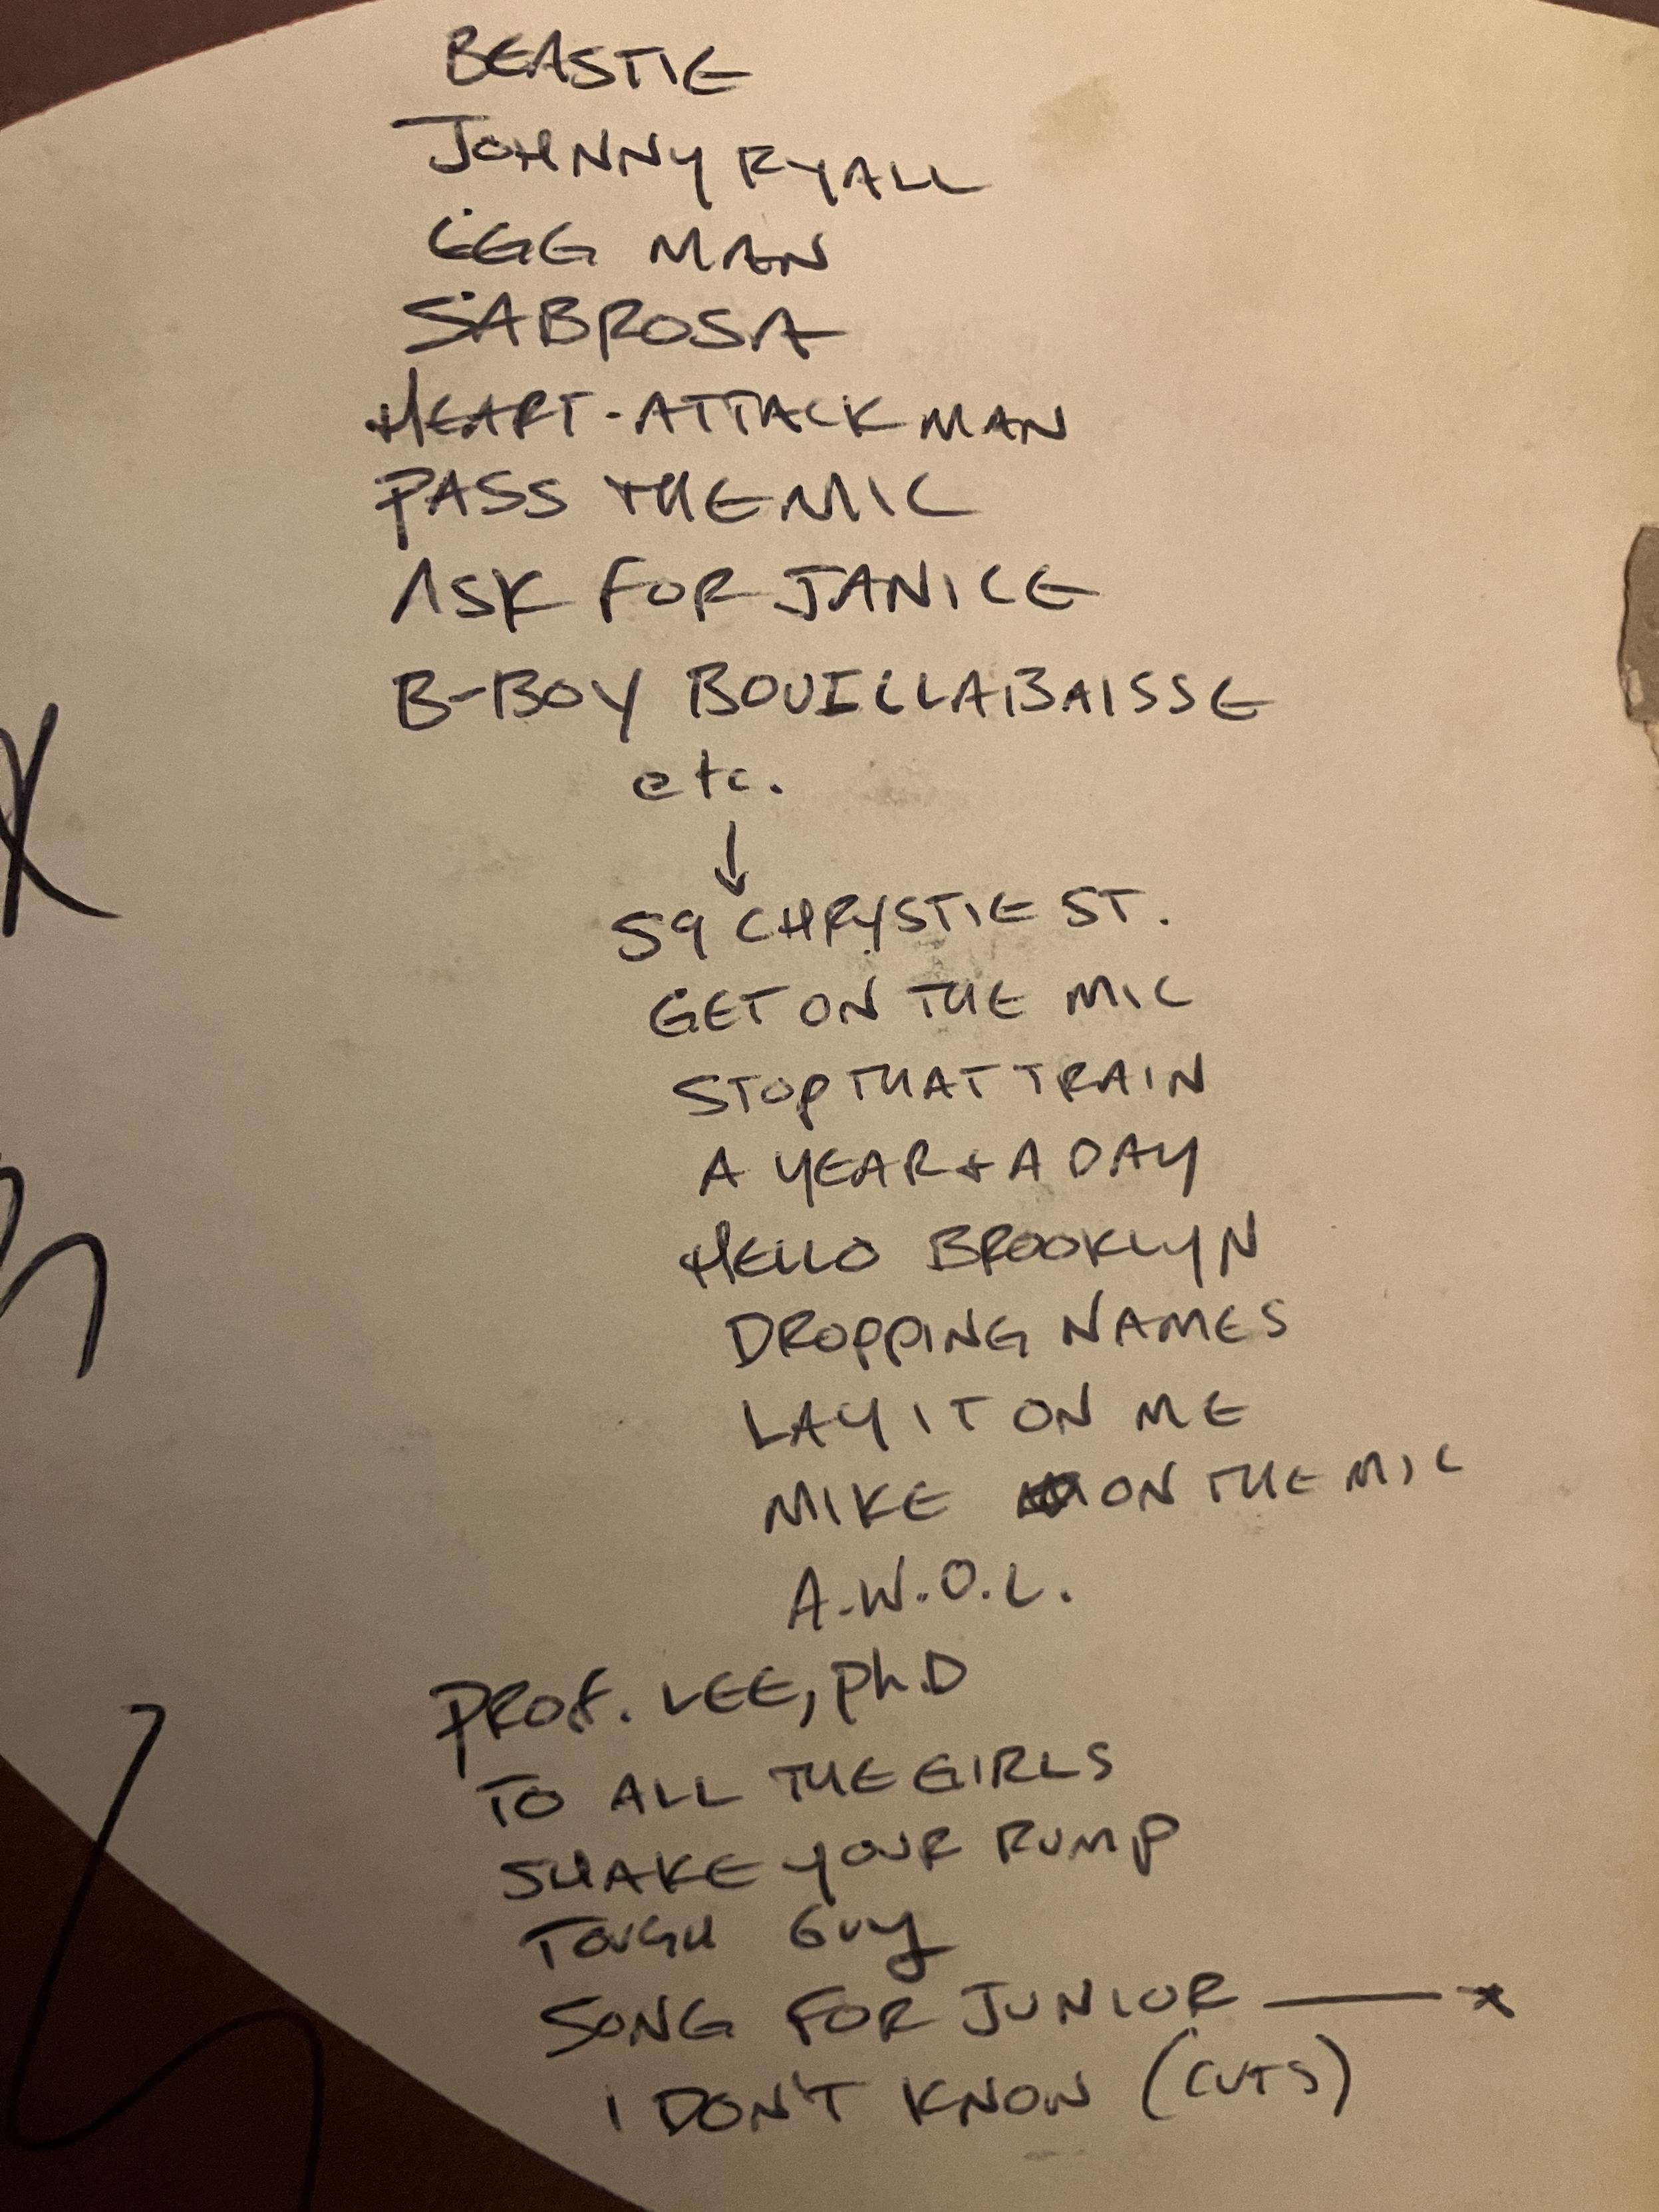 BEASTIE
JOHNNY RYALL
EGG MAN
SABROSA
HEART-ATTACK MAN
PASS THE MIC
ASK FOR JANICE
B-BOY BOUILLABAISSE
etc.
↓
59 CHRYSTIE ST.
GET ON THE MIC
STOP THAT TRAIN
A YEAR + A DAY
HELLO BROOKLYN
DROPPING NAMES
LAY IT ON ME
MIKE ON THE MIC
A.W.O.L.
PROF. LEE, Ph.D
TO ALL THE GIRLS
SHAKE YOUR RUMP
TOUGH GUY
SONG FOR JUNIOR —— *
I DON'T KNOW (CUTS)